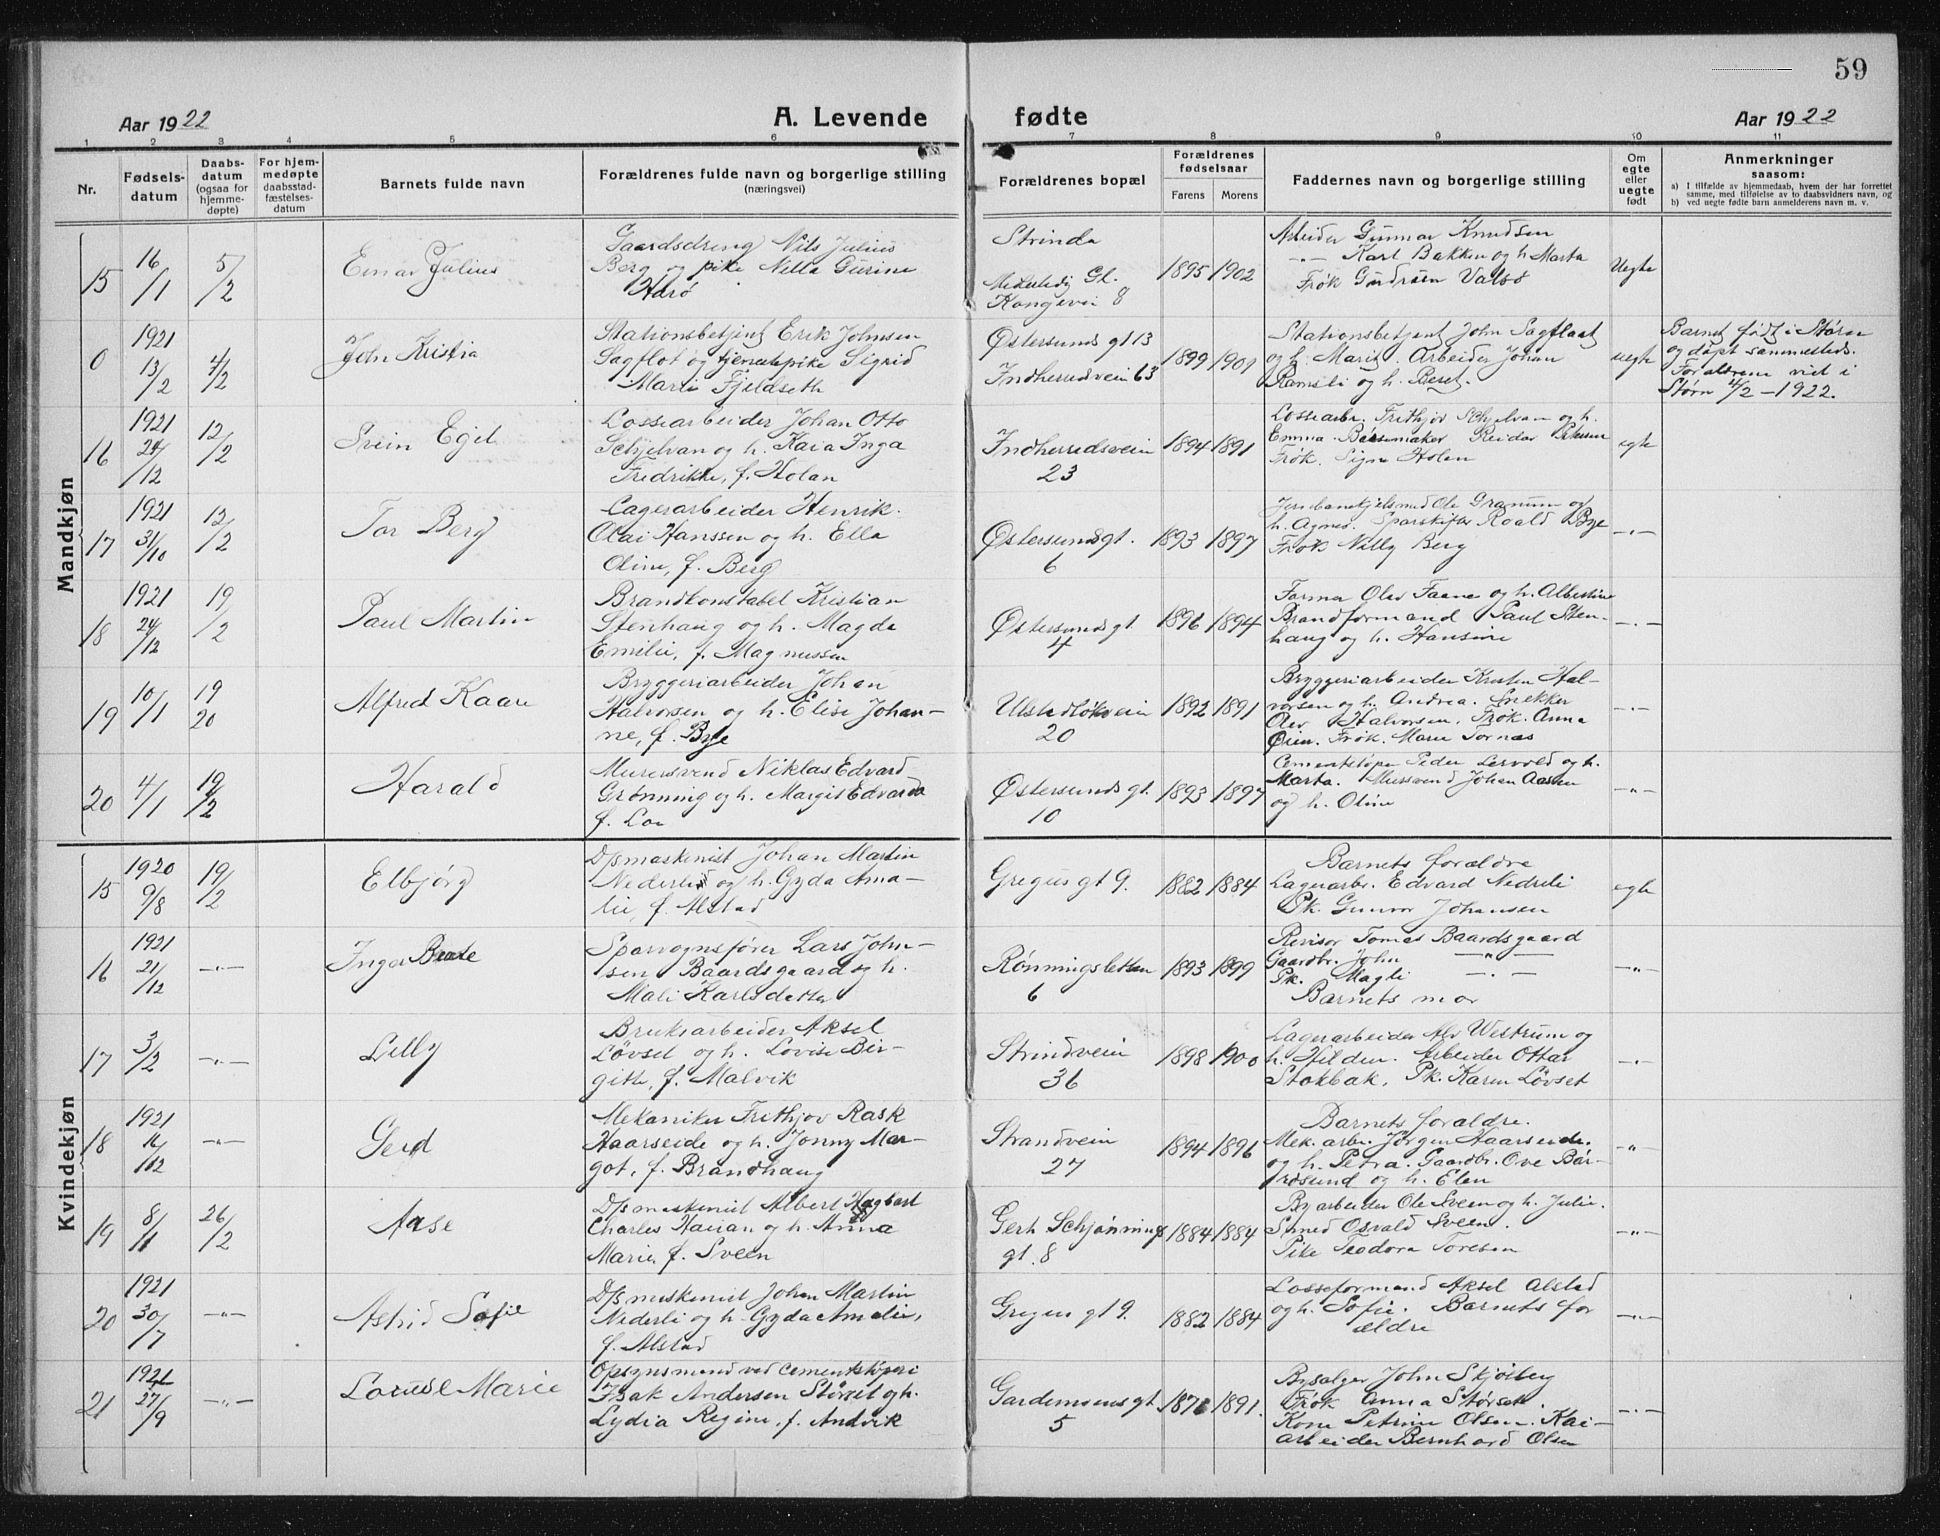 59
Aar 1922
A. Levende
fødte
Aar 1922
1 2 3 4 5 6 7 8 9 10 11
Nr.
Fødselsdatum
Daabsdatum (ogsaa for hjemmedøpte)
For hjemmedøpte daabsstadfæstelsesdatum
Barnets fulde navn
Forældrenes fulde navn og borgerlige stilling
(næringsvei)
Forældrenes bopæl
Forældrenes fødselsaar
Farens Morens
Faddernes navn og borgerlige stilling
Om egte eller uegte født
Anmerkninger
saasom:
a) I tilfælde av hjemmedaab, hvem der har forrettet samme, med tilføielse av to daabsvidners navn, og
b) ved uegte fødte barn anmelderens navn m. v.
Mandkjøn
15 16/1 5/2 Einar Julius
Gaardsdreng Nils Julius
Berg og pike Nella Gurine
Strinda
Gl.
Kongevei 8
1895 1902
Arbeider Gunnar Knudsen
-"- Karl Bakken og h. Marta
Frøk Gudrun Valsø
Uegte
0 1921 13/2 4/2 John Kristia
Stationsbetjent Erik Johnsen
Sagflot og tjenestepike Sigrid
Marie Fjeldseth
Østersunds gt 13
Indherredvein 63
1899 1901
Stationsbetjent John Sagflaat
og h. Marit. Arbeider Johan
og h. Beret.
uegte
Barnet født i Støren
og døpt sammesteds.
Forældrene viet i
Støren 4/2 - 1922.
16 1921 24/12 12/2 Svein Egil
Lossearbeider Johan Otto
Schjelvan og h. Kaia Inga
Fredrikke, f. Holan
Indherredsveien
23
1894 1891
Lossearb. Frithjov Schjelvan og h.
Emma. Reidar Petersen
Frøk. Signe Holen
egte
17 1921 31/10 12/2 Tor Berg
Lagerarbeider Henrik
Olai Hanssen og h. Ella
Oline, f. Berg
Østersundsgt.
6
1893 1897
Ole Granum og
h. Agnes. Roald Bye
Frøk Nilly Berg
-"-
18 1921 24/12 19/2 Paul Martin
Brandkonstabel Kristian
Stenhaug og h. Magda
Emilie, f. Magnussen
Østersundsgt.
4
1896 1894
Former Olav Faane og h. Albertine
Brandformand Paul Sten-
haug og h. Hansine
-"-
19 10/1 19/20 Alfred Kaare
Bryggeriarbeider Johan
Halvorsen og h. Elise Johan-
ne, f. Bye
Ulstadløkveien
20
1892 1891
Bryggeriarbeider Kristen Hal-
vorsen og h. Andrea. Snekker
Olav Halvorsen. Frøk. Anna
Øien. Frøk. Marie Tornæs
-"-
20 4/1 19/2 Harald
Murersvend Niklas Edvard
Grønning og h. Margit Edvarda
f. Loe
Østersunds gt.
10
1893 1897
Peder Lervold og h.
Marta. Mursvend Johan Aasen
og h. Oline
-"-
Kvindekjøn
15 1920 9/8 19/2 Elbjørg
D/s maskinist Johan Martin
Nederli og h. Gyda Ama-
lie, f. Alstad
Gregus gt 9.
1882 1884
Barnets forældre
Lagerarbr. Edvard Nedreli
Pk. Gunvor Johansen
egte
16 1921 21/12 -"- Inger Beate
Sporvognsfører Lars John-
sen Baardsgaard og h.
Mali Karlsdatter
Rønningsletten
6
1893 1899
Revisor Tomas Baardsgaard
Gaardbr. John -"-
Pk. Magli -"-
Barnets mor
-"-
17 3/2 -"- Lilly
Bruksarbeider Aksel
Løvset og h. Lovise Bir-
gitte, f. Malvik
Strindveien
36
1898 1900
Lagerarbeider Alf Westrum og
h. Hilden. Arbeider Ottar
Stokbak. Pk. Karen Løvset
-"-
18 1921 16/12 -"- Gerd
Mekaniker Frithjov Rask
Haarseide og h. Jonny Mar-
got, f. Brandhaug
Strandvein
27
1894 1896
Barnets forældre.
Mek. arbr. Jørgen Haarseide.
og h. Petra. Gaardbr. Ove Bår-
røsund og h. Elen
-"-
19 8/1 26/2 Aase
D/s maskinist Albert Hagbart
Charles Haraan og h. Anna
Marie, f. Sveen
Gerh. Schjønnings
gt. 8
1884 1884
Byarbeider Ole Sveen og h. Julie.
Smed Osvald Sveen.
Pike Teodora Toresen
-"-
20 1921 30/7 -"- Astrid Sofie
D/s maskinist Johan Martin
Nederli og h. Gyda Amalie,
f. Alstad
Gregus gt 9.
1882 1884
Losseformand Aksel Alstad
og h. Sofie. Barnets for
ældre
-"-
21 1921 27/9 -"- Marie
Opsynsmand ved cementstøperi
Isak Andersen Størset og h.
Lydia Regine, f. Andvik
Gardemoensgt.
5
1871 1891.
Bysælger John Skjølberg
Frøk Anna Størset.
Kone Petrine Olsen. Kai-
arbeider Bernhard Olsen
-"-